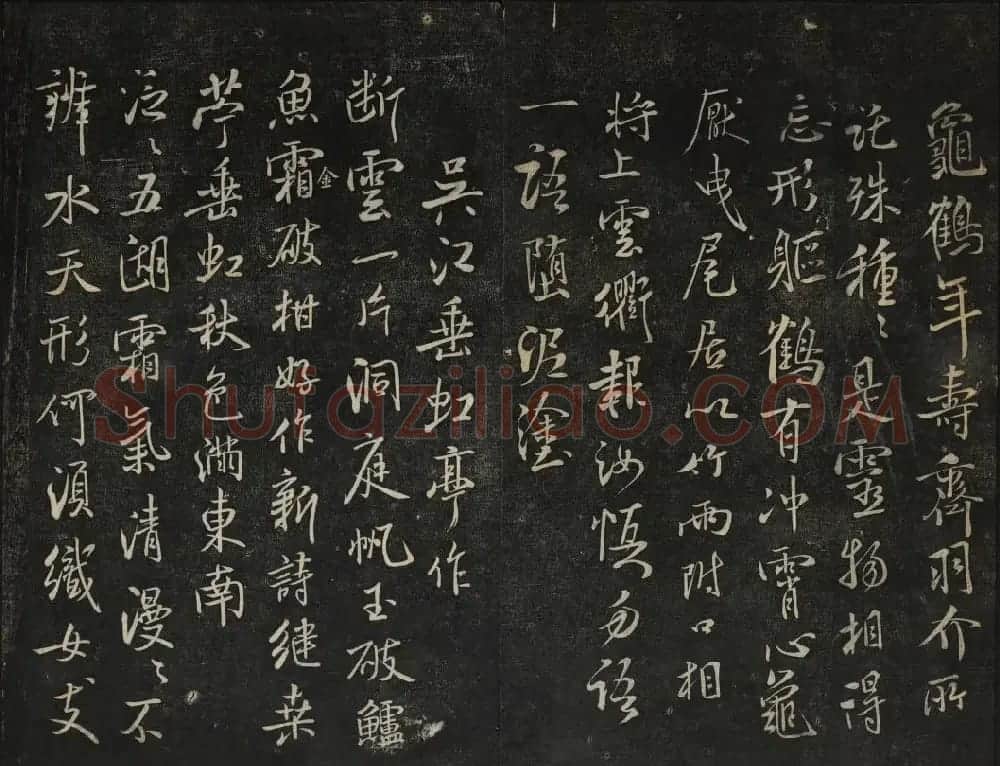 龜鶴年壽齊羽介所
託殊種〻是靈物相得
忘形軀鶴有冲霄心龜
厭曳尾居以竹兩附口相
將上雲衢報汝慎勿語
一語墮泥塗
吳江垂虹亭作
断雲一片洞庭帆玉破鱸
魚霜金破柑好作新詩繼桑
苧垂虹秋色滿東南
泛〻五湖霜氣清漫〻不
辨水天形何須織女支
Shufaziliao.com